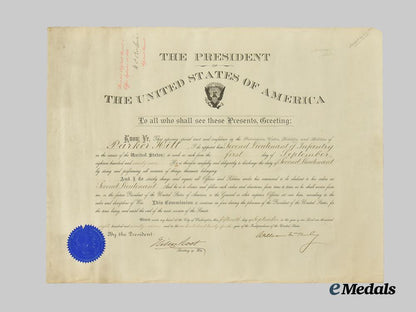 THE PRESIDENT
OF
THE UNITED STATES OF AMERICA
To all who shall see these Presents, Greeting:
Know Ye, That reposing special trust and confidence in the Patriotism, Valor, Fidelity and Abilities of
Parker Hitt, I do appoint him Second Lieutenant of Infantry
in the service of the United States: to rank as such from the first day of September
eighteen hundred and ninety nine. He is therefore carefully and diligently to discharge the duty of Second Lieutenant
by doing and performing all manner of things thereunto belonging.
And I do strictly charge and require all Officers and Soldiers under his command to be obedient to his orders as
Second Lieutenant. And he is to observe and follow such orders and directions, from time to time, as he shall receive
from me, or the future President of the United States of America, or the General or other superior Officers set over him, according to the
rules and discipline of War. This Commission to continue in force during the pleasure of the President of the United States,
for the time being, and until the end of the next session of the Senate.
Given under my hand at the City of Washington, this day of September in the year of our Lord one thousand
eight hundred and ninety nine and in the one hundred and twenty fourth year of the Independence of the United States.
By the President:
Elihu Root
Secretary of War.
William McKinley
eMedals